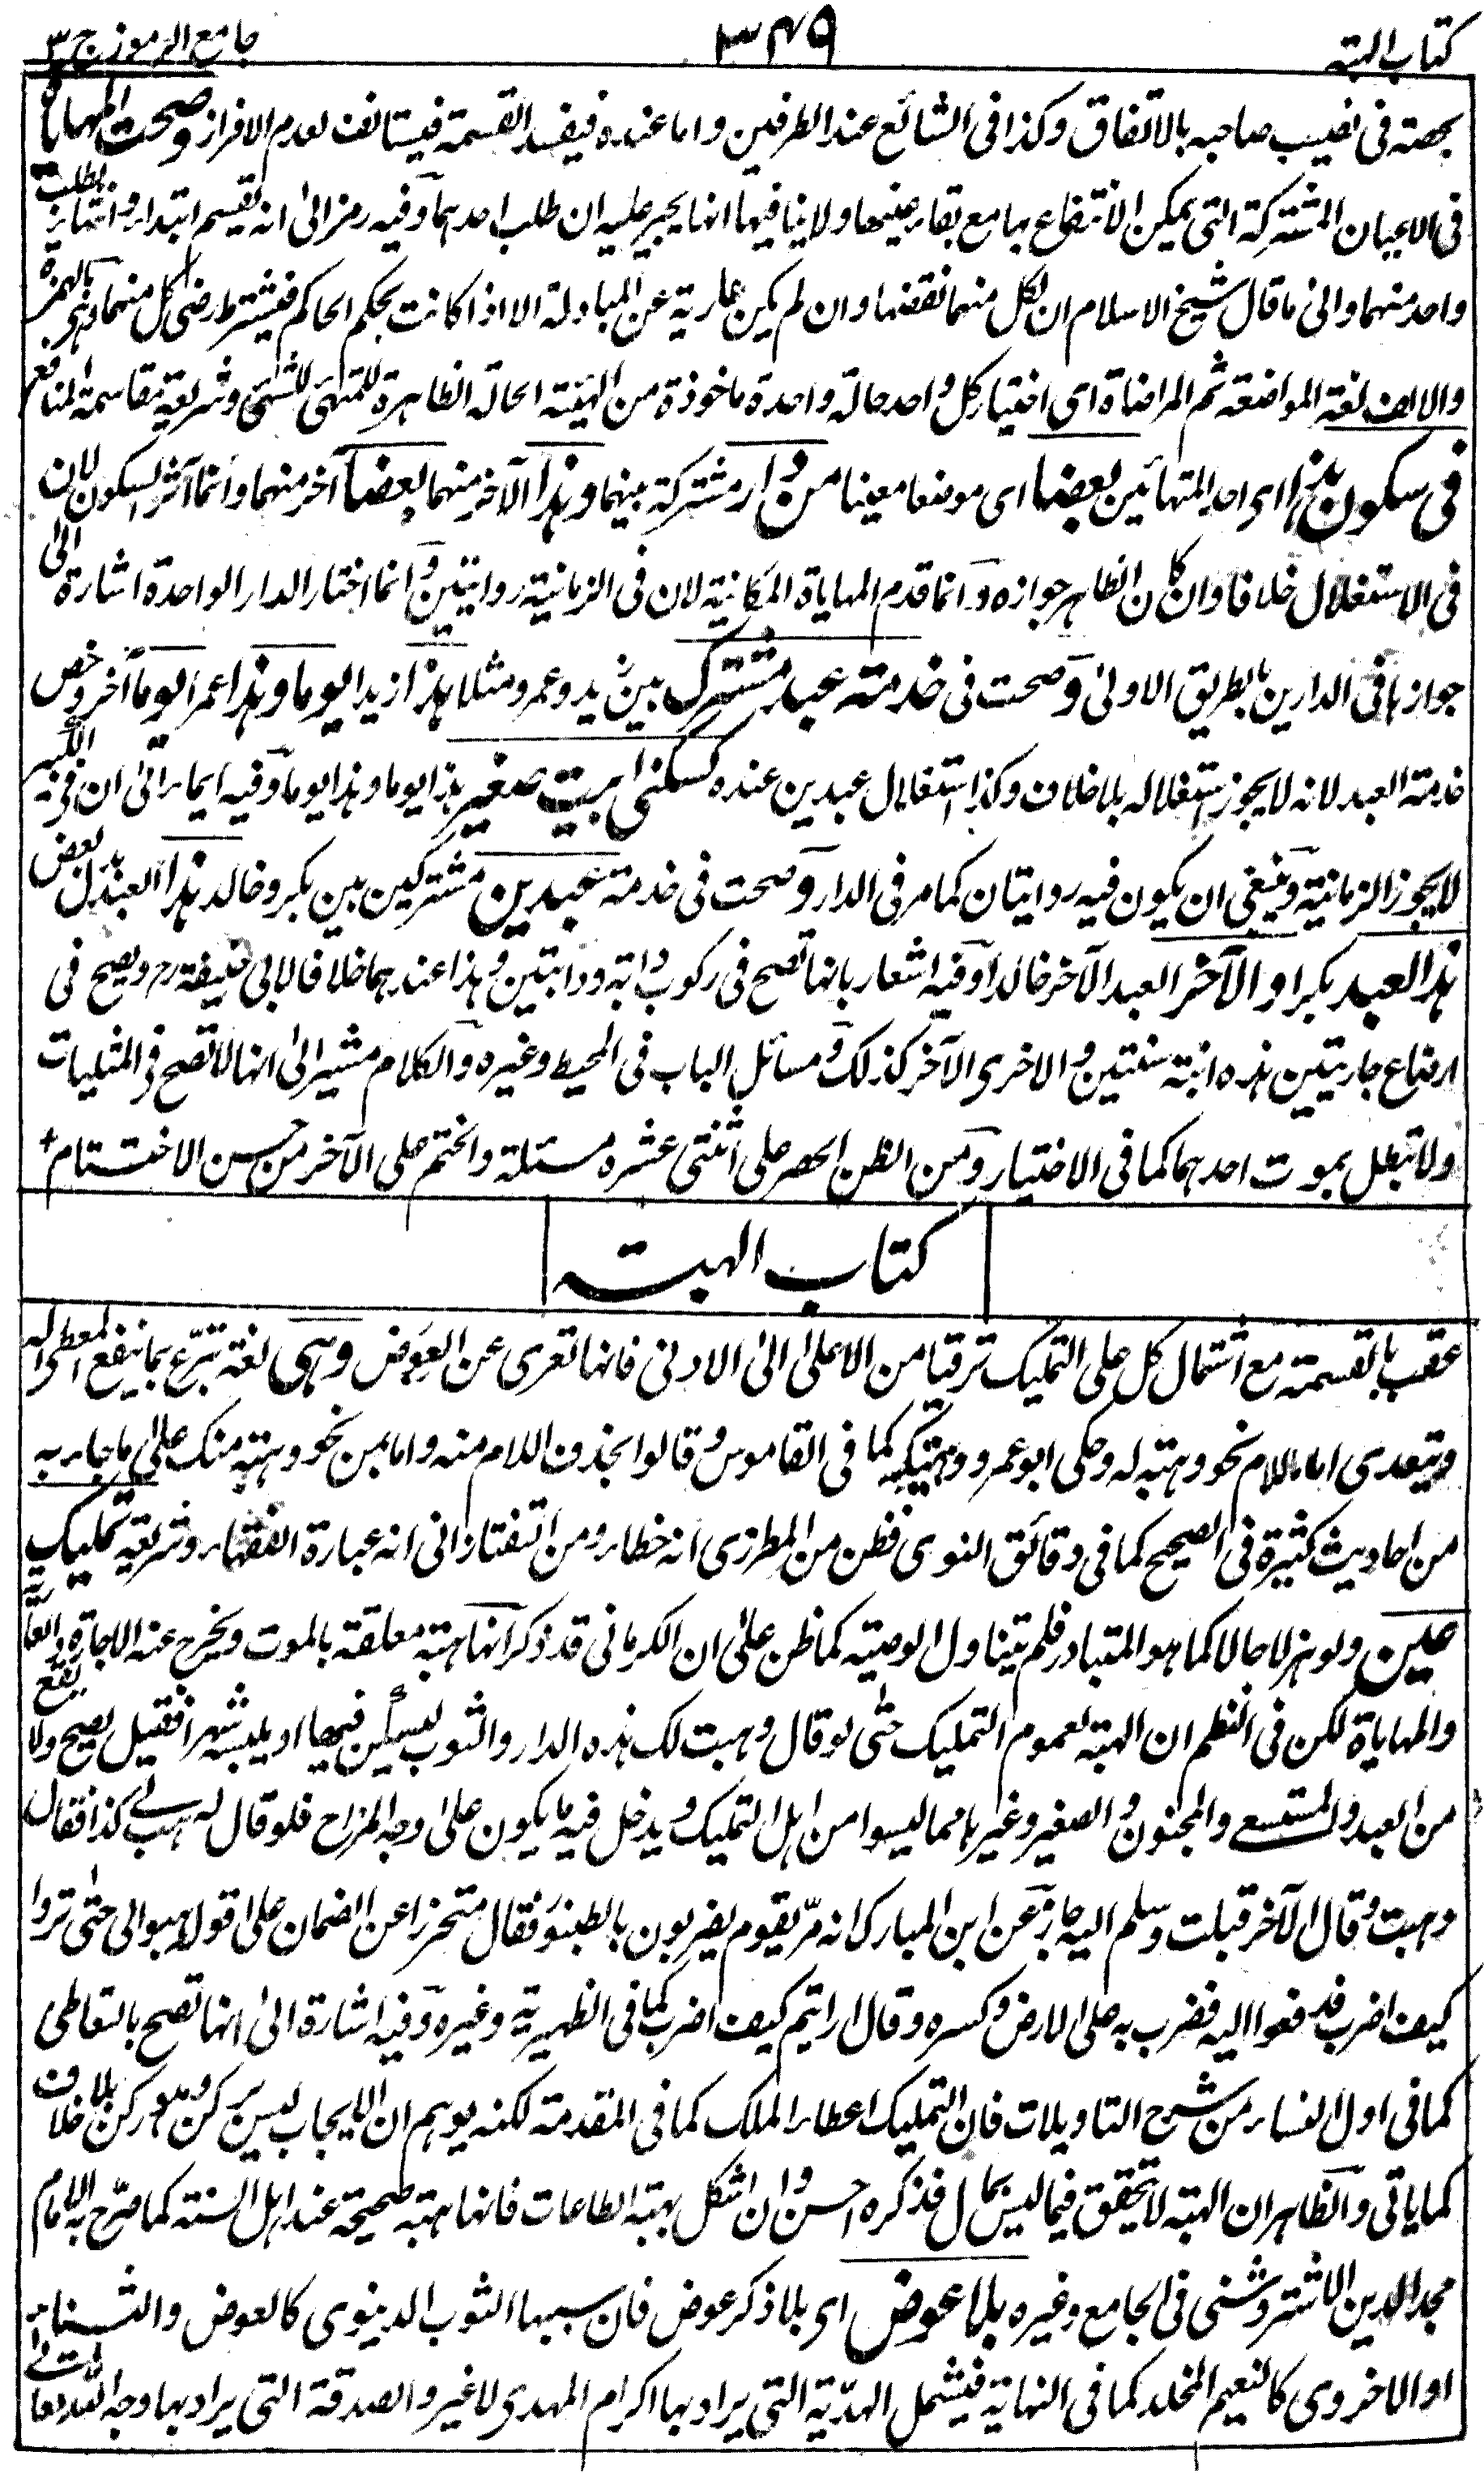 كتاب الهبة
٣٤٩
جامع الرموز ج ٣
بحصته فى نصيب صاحبه بالاتفاق وكذا فى الشائع عند الطرفين واما عنده فيفسد القسمة فيستانف لعدم الافراز وصحت المهاياة
فى الاعيان المشتركة التى يمكن الانتفاع بها مع بقاء عينها ولا ينافيها انها يجبر عليه ان طلب احدهما وفيه رمز الى انه تقسيم ابتداء وانتهاء بطلب
واحد منهما والى ما قال شيخ الاسلام ان لكل منهما نقضها وان لم يكن عارية عن المبادلة الا اذا كانت بحكم الحاكم فيشترط رضى كل منهما وهى بالهمزة
والالف لغة المواضعة ثم المراضاة اى اختيار كل واحد حالة واحدة ماخوذة من الهيئة الحالة الظاهرة للمتهيئ للشئ وشريعة مقاسمة المنافع
فى سكون هذا اى احد المتهائين بعضا اى موضعا معينا من دار مشتركة بينهما وهذا الآخر منهما بعضا آخر منهما وانما آثر السكون لان
فى الاستغلال خلافا وان كان الظاهر جوازه وانما قدم المهاياة المكانية لان فى الزمانية روايتين وانما اختار الدار الواحدة اشارة الى
جوازها فى الدارين بالطريق الاولى وصحت فى خدمة عبد مشترك بين زيد وعمرو مثلا هذا زيدا يوما وهذا عمرا يوما آخر وخص
خدمة العبد لانه لا يجوز استغلاله بلا خلاف وكذا استغلال عبدين عنده كسكنى بيت صغير هذا يوما وهذا يوما وفيه ايماء الى ان فى الكبير
لا يجوز الزمانية وينبغى ان يكون فيه روايتان كما مر فى الدار وصحت فى خدمة عبدين مشتركين بين بكر وخالد هذا العبد بدل بعض
هذا العبد بكرا والآخر العبد الآخر خالدا وفيه اشعار بانها تصح فى ركوب دابة ودابتين وهذا عندهما خلافا لابى حنيفة رح ويصح فى
ارضاع جاريتين هذه ابنته سنتين والاخرى الآخر كذلك ومسائل الباب فى المحيط وغيره والكلام مشير الى انها لا تصح فى المثليات
ولا تبطل بموت احدهما كما فى الاختيار ومن الظن الحصر على اثنتى عشرة مسئلة والختم على الآخر من حسن الاختتام
كتاب الهبة
عقب بالقسمة مع اشتمال كل على التمليك ترقيا من الاعلى الى الادنى فانها تعرى عن العوض وهى لغة تبرع بما ينفع المعطى له
ويتعدى اما باللام نحو وهبته له وحكى ابو عمرو وهبتكه كما فى القاموس وقالوا بحذف اللام منه واما بمن نحو وهبته منك على ما جاء به
من احاديث كثيرة فى الصحيح كما فى دقائق النووى فظن من المطرزى انه خطاء ومن التفتازانى انه عبارة الفقهاء وشريعة تمليك
عين ولو هزلا حالا كما هو المتبادر فلم يتناول الوصية كما ظن على ان الكرمانى قد ذكر انها هبة معلقة بالموت ويخرج عنه الاجارة والعارية
والمهاياة لكن فى النظم ان الهبة لعموم التمليك حتى لو قال وهبت لك هذه الدار والثوب ليسكن فيها او يلبسه شهرا فقبل يصح ولا يقع
من العبد والمستسعى والمجنون والصغير وغيرها مما ليسوا من اهل التمليك ويدخل فيه ما يكون على وجه المزاح فلو قال له هب لى كذا فقال
وهبت وقال الآخر قبلت وسلم اليه جاز عن ابن المبارك انه مر بقوم يضربون بالطنبور فقال متحرزا عن الضمان على اقول هبوا الى حتى تروا
كيف اضرب فدفعوا اليه فضرب به على الارض وكسره وقال ارايتم كيف اضرب كما فى الظهيرية وغيره وفيه اشارة الى انها تصح بالتعاطى
كما فى اول النساء من شرح التاويلات فان التمليك اعطاء الملك كما فى المقدمة لكنه يوهم ان الايجاب ليس بركن وهو ركن بلا خلاف
كما ياتى والظاهر ان الهبة لا تتحقق فيما ليس بمال فذكره احسن وان اشكل بهبة الطاعات فانها هبة صحيحة عند اهل السنة كما صرح به الامام
مجد الدين الاشتروشنى فى الجامع وغيره بلا عوض اى بلا ذكر عوض فان سببها الثوب الدينوى كالعوض والثناء
او الاخروى كالنعيم المخلد كما فى النهاية فيشمل الهدية التى يراد بها اكرام المهدى لا غير والصدقة التى يراد بها وجه الله تعالى